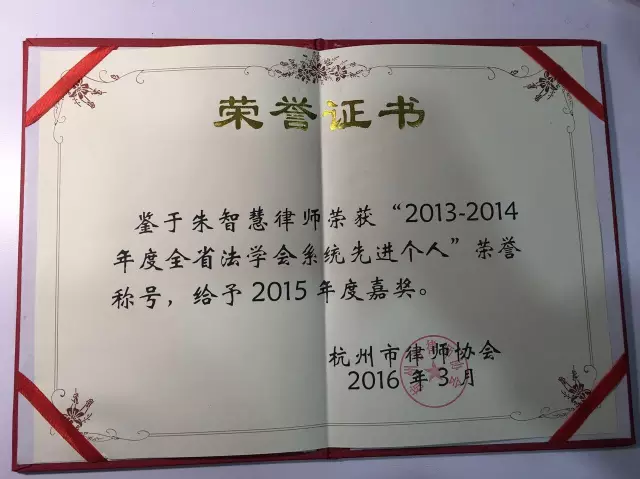 荣誉证书
鉴于朱智慧律师荣获“2013-2014
年度全省法学会系统先进个人”荣誉
称号，给予 2015 年度嘉奖。
杭州市律师协会
2016 年 3 月